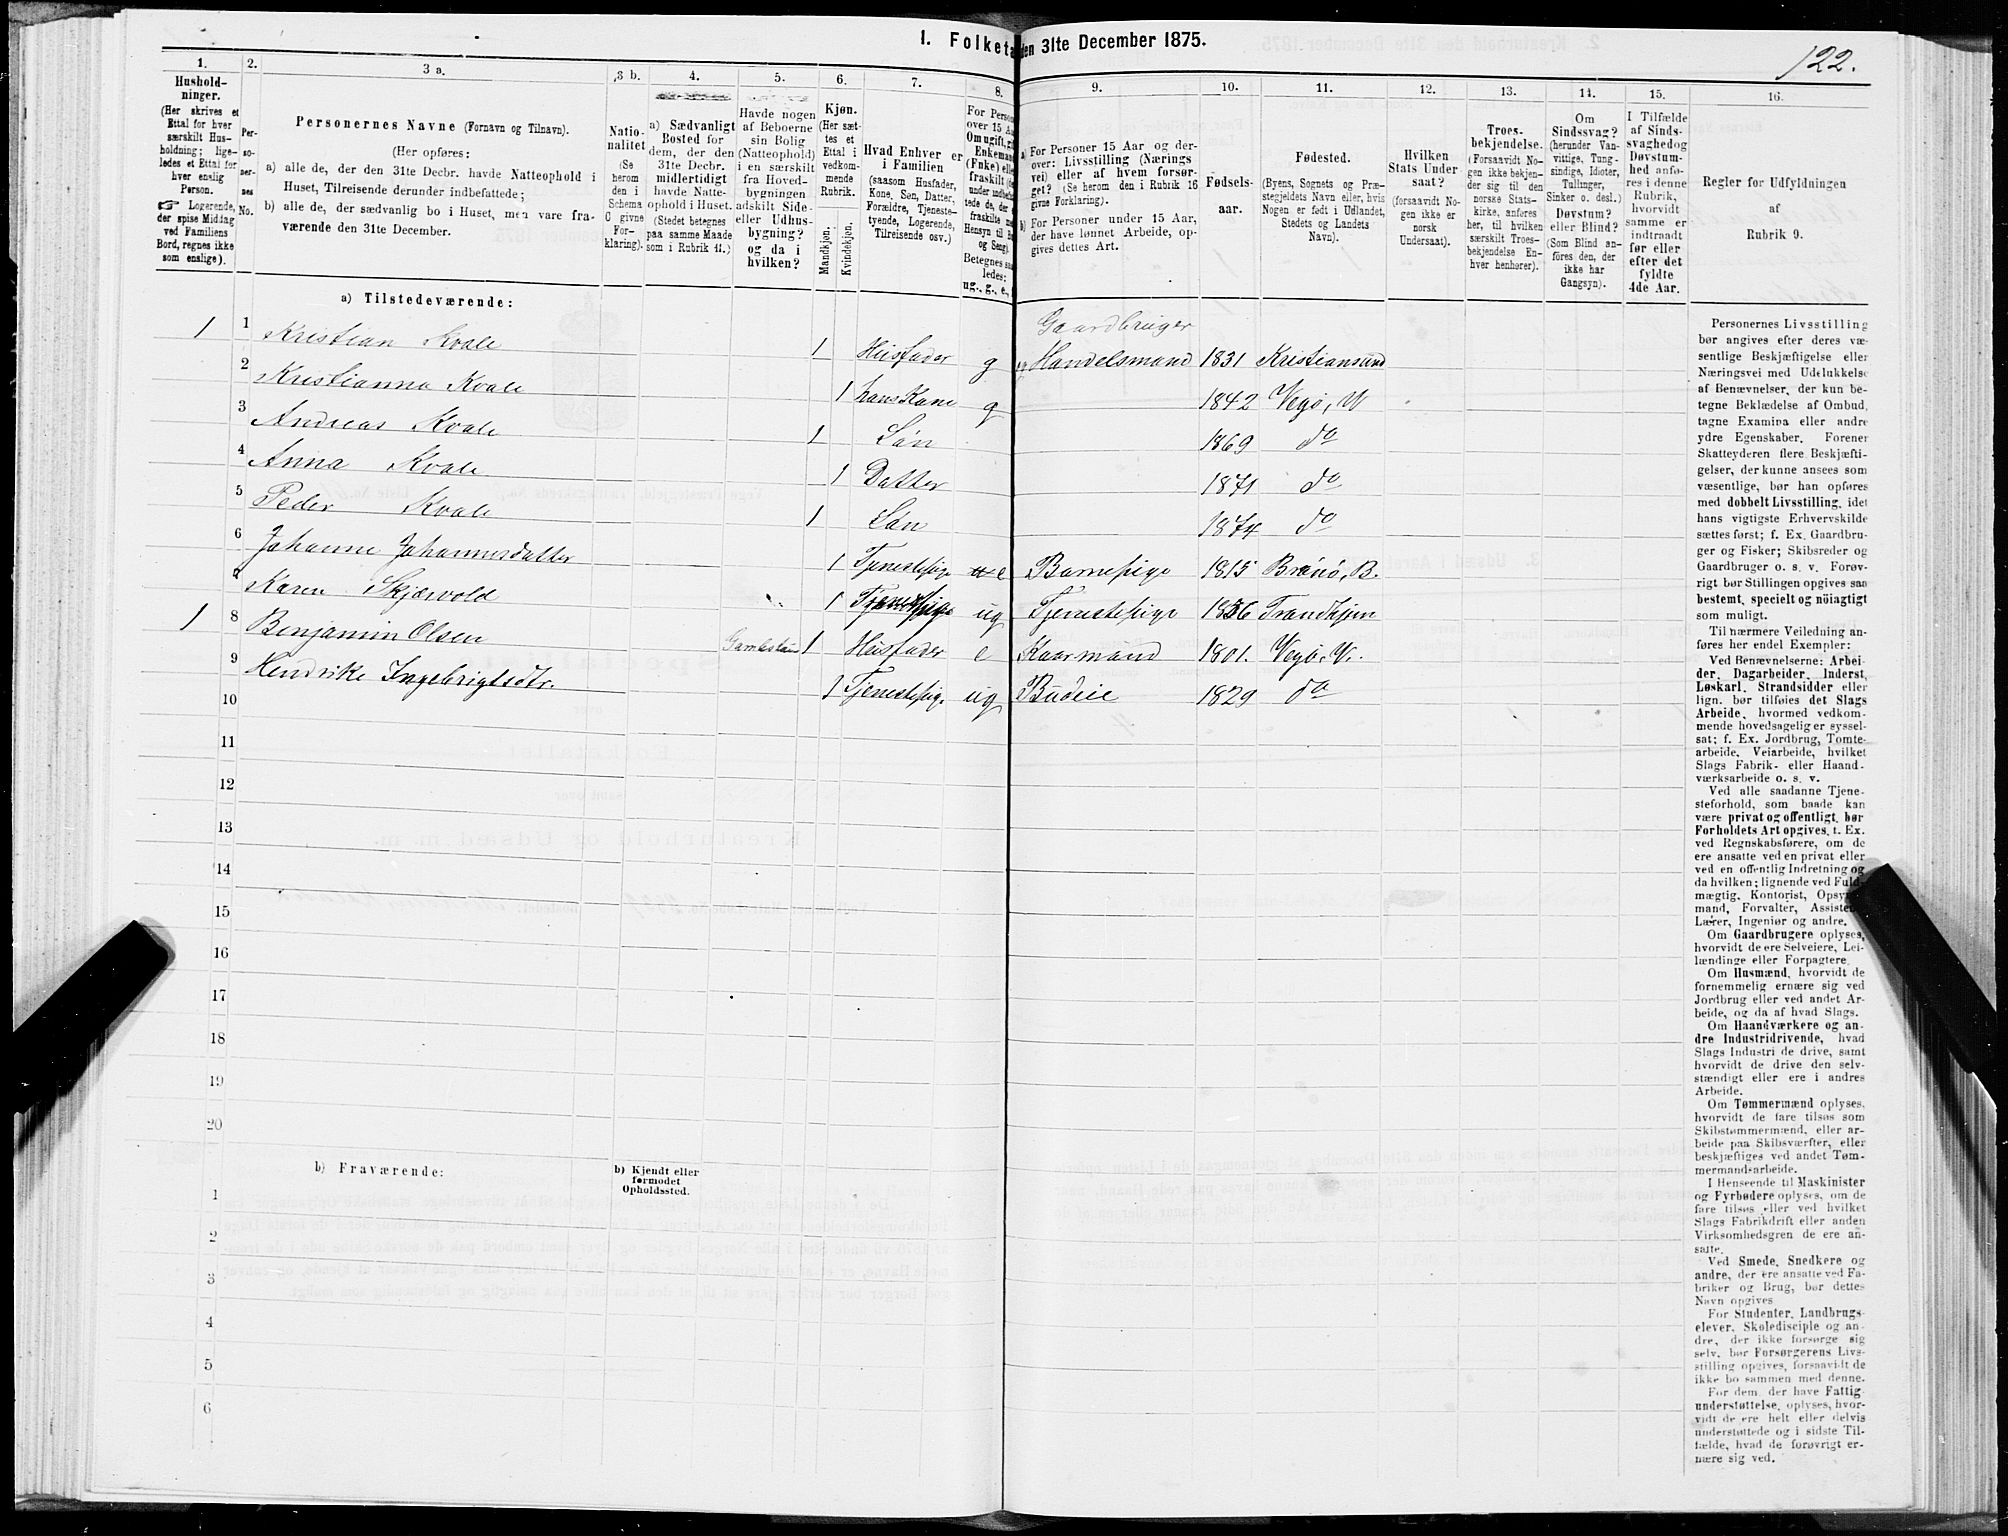 1. Folketa
den 31te December 1875.
122.
1.
Hushold-
ninger.
(Her skrives et
Ettal for hver
særskilt Hus-
holdning; lige-
ledes et Ettal for
hver enslig
Person.
☞ Logerende,
der spise Middag
ved Familiens
Bord, regnes ikke
som enslige).
2.
Per-
so-
ner-
nes
No.
3 a.
Personernes Navne (Fornavn og Tilnavn).
(Her opføres:
a) alle de, der den 31te Decbr. havde Natteophold i
Huset, Tilreisende derunder indbefattede;
b) alle de, der sædvanlig bo i Huset, men vare fra-
værende den 31te December.
3 b.
Natio-
nalitet
(Se
herom
den i
Schema
C givne
For-
klaring).
4.
a) Sædvanligt
Bosted for
dem, der den
31te Decbr.
midlertidigt
havde Natte-
ophold i Huset.
(Stedet betegnes
paa samme Maade
som i Rubrik 11.)
5.
Havde nogen
af Beboerne
sin Bolig
(Natteophold)
i en særskilt
fra Hoved-
bygningen
adskilt Side-
eller Udhus-
bygning?
og da i
hvilken?
6.
Kjøn.
(Her sæt-
tes et
Ettal i
vedkom-
mende
Rubrik.
Mandkjøn.
Kvindekjøn.
7.
Hvad Enhver er
i Familien
(saasom Husfader,
Kone, Søn, Datter,
Forældre, Tjeneste-
tyende, Logerende,
Tilreisende osv.)
8.
For Person
over 15 Aa
Om ugift, g
Enkeman
(Enke) elle
fraskilt
under indbefa
tede de, de
fraskilte
Hensyn til B
og Seng)
Betegnes saa
ledes:
ug., g., e.,
9.
a) For Personer 15 Aar og der-
over: Livsstilling (Nærings
vei) eller af hvem forsør-
get? (Se herom den i Rubrik 16
givne Forklaring).
b) For Personer under 15 Aar,
der have lønnet Arbeide, op-
gives dettes Art.
10.
Fødsels-
aar.
11.
Fødested.
(Byens, Sognets og Præ-
stegjeldets Navn eller, hvis
Nogen er født i Udlandet,
Stedets og Landets
Navn).
12.
Hvilken
Stats Under
saat?
(forsaavidt No-
gen ikke er
norsk
Undersaat).
13.
Troes-
bekjendelse.
(Forsaavidt No-
gen ikke bekjen-
der sig til den
norske Stats-
kirke, anføres
her, til hvilken
særskilt Troes-
bekjendelse En-
hver henhører).
14.
Om
Sindssvag?
(herunder Van-
vittige, Tung-
sindige, Idioter,
Tullinger,
Sinker o. desl.)
Døvstum?
eller Blind?
(Som Blind an-
føres den, der
ikke har
Gangsyn).
15.
I Tilfælde
af Sinds-
svaghedog
Døvstum-
hed anfø-
res i denne
Rubrik,
hvorvidt
samme er
indtraadt
før eller
efter det
fyldte
4de Aar.
16.
Regler for Udfyldningen
af
Rubrik 9.
a) Tilstedeværende:
Gaardbruger
1 1 Kristian Kvale 1 Husfader g og Handelsmand 1831 Kristiansund
2 Kristianna Kvale 1 hans Kone g 1842 Vegø, V
3 Andreas Kvale 1 Søn 1869 do
4 Anna Kvale 1 Datter 1871 do
5 Peder Kvale 1 Søn 1874 do
6 Johanne Johannesdatter 1 Tjenestepige e Barnepige 1815 Brønø, B.
7 Karen Skjævold 1 Tjenestepige ug Tjenestepige 1856 Trondhjem
1 8 Benjamin Olsen 1 Husfader e Kaarmand 1801. Vegø. V.
9 Hendrike Ingebrigtsdtr. 1 Tjenestepig. ug Budeie 1829 do
10
11
12
13
14
15
16
17
18
19
20
b) Fraværende:
b) Kjendt eller
formodet
Opholdssted.
1
2
3
4
5
6
Personernes Livsstilling
bør angives efter deres væ-
sentlige Beskjæftigelse eller
Næringsvei med Udelukkelse
af Benævnelser, der kun be-
tegne Beklædelse af Ombud,
tagne Examina eller andre
ydre Egenskaber. Forener
Skatteyderen flere Beskjæfti-
gelser, der kunne ansees som
væsentlige, bør han opføres
med dobbelt Livsstilling, idet
hans vigtigste Erhvervskilde
sættes først; f. Ex. Gaardbru-
ger og Fisker; Skibsreder og
Gaardbruger o. s. v. Forøv-
rigt bør Stillingen opgives saa
bestemt, specielt og nöiagtigt
som muligt.
Til nærmere Veiledning an-
føres her endel Exempler:
Ved Benævnelserne: Arbei-
der, Dagarbeider, Inderst,
Løskarl, Strandsidder eller
lign. bør tilføies det Slags
Arbeide, hvormed vedkom-
mende hovedsagelig er syssel-
sat; f. Ex. Jordbrug, Tomte-
arbeide, Veiarbeide, hvilket
Slags Fabrik- eller Haand-
værksarbeide o. s. v.
Ved alle saadanne Tjene-
steforhold, som baade kan
være privat og offentligt, bør
Forholdets Art opgives, t. Ex.
ved Regnskabsførere, om de
ere ansatte ved en privat eller
ved en offentlig Indretning og
da hvilken; lignende ved Fuld-
mægtig, Kontorist, Opsyns-
mand, Forvalter, Assistent,
Lærer, Ingeniør og andre.
Om Gaardbrugere oplyses,
hvorvidt de ere Selveiere, Lei-
lændinge eller Forpagtere.
Om Husmænd, hvorvidt de
fornemmelig ernære sig ved
Jordbrug eller ved andet Ar-
beide, og da af hvad Slags.
Om Haandværkere og an-
dre Industridrivende, hvad
Slags Industri de drive, samt
hvorvidt de drive den selv-
stændigt eller ere i andres
Arbeide.
Om Tømmermænd oplyses,
hvorvidt de fare tilsøs som
Skibstømmermænd, eller ar-
beide paa Skibsværfter, eller
beskjæftiges ved andet Tøm-
mermandsarbeide.
I Henseende til Maskinister
og Fyrbødere oplyses, om de
fare tilsøs eller ved hvilket
Slags Fabrikdrift eller anden
Virksomhedsgren de ere an-
satte.
Ved Smede, Snedkere og
andre, der ere ansatte ved Fa-
briker og Brug, bør dettes
Navn opgives
For Studenter, Landbrugs-
elever, Skoledisciple og an-
dre, der ikke forsørge sig
selv, bør Forsørgerens Livs-
stilling opgives, forsaavidt de
ikke bo sammen med denne.
For dem, der have Fattig-
understøttelse, oplyses, hvor-
vidt de ere helt eller delvis
understøttede og i sidste Til-
fælde, hvad de forøvrigt er-
nære sig ved.